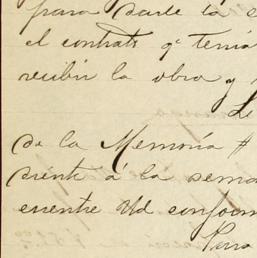 para darle la
el contrato qe tenía
recibir la obra y
Le
de la Memoria #
diente á la sema
cuentre Ud conform